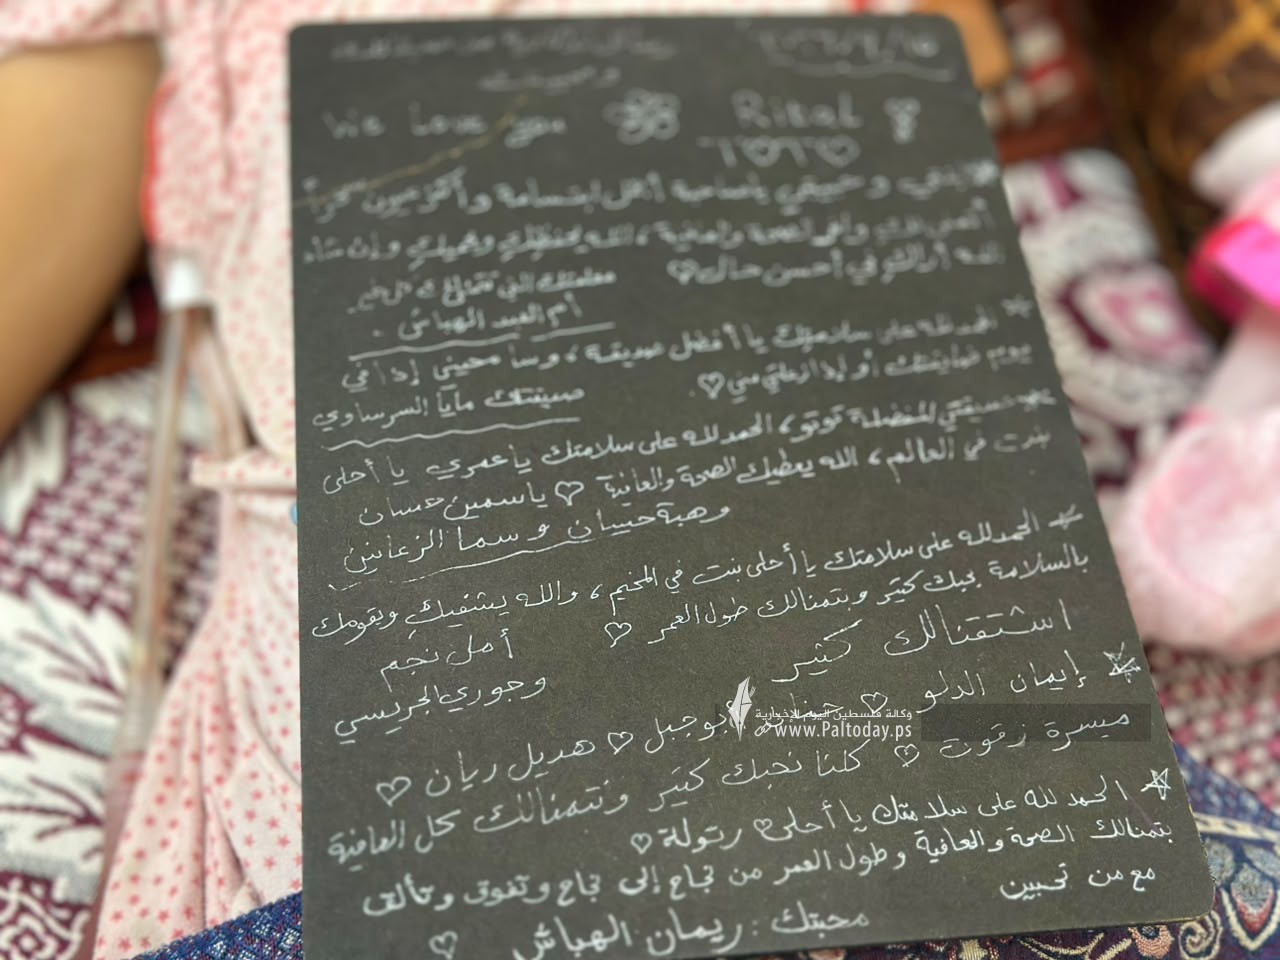 We Love you
Rital
TOTO
بنتي وحبيبتي يا صاحبة أجمل ابتسامة وأكثر عيون سحراً
أتمنى لك وافر الصحة والعافية، الله يحفظك ويحميك وإن شاء
الله أراك في أحسن حال
معلمتك التي تتمنى لك كل خير
أم العبد الهباش
الحمدلله على سلامتك يا أفضل صديقة، وسامحيني إذا في
يوم ضايقتك أو إذا زعلتي مني
صديقتك مايا السرساوي
صديقتي المفضلة توتو، الحمدلله على سلامتك يا عمري يا أحلى
بنت في العالم، الله يعطيك الصحة والعافية ♡ ياسمين حسان
وهبة حسان وسما الزعانين
الحمدلله على سلامتك يا أحلى بنت في المخيم، والله يشفيكِ ويقومك
بالسلامة بحبك كتير وبتمنالك طول العمر ♡ أمل نجم
اشتقنالك كثير
وجوري الجريسي
إيمان الدلو ♡ أبو جبل ♡ هديل ريان ♡
ميسرة زقوت ♡ كلنا نحبك كتير ونتمنالك كل العافية
الحمد لله على سلامتك يا أحلى رتولة ♡
بتمنالك الصحة والعافية وطول العمر من نجاح إلى نجاح وتفوق وتألق
مع من تحبين
محبتك : ريمان الهباش ♡
وكالة فلسطين اليوم الإخبارية
www.Paltoday.ps